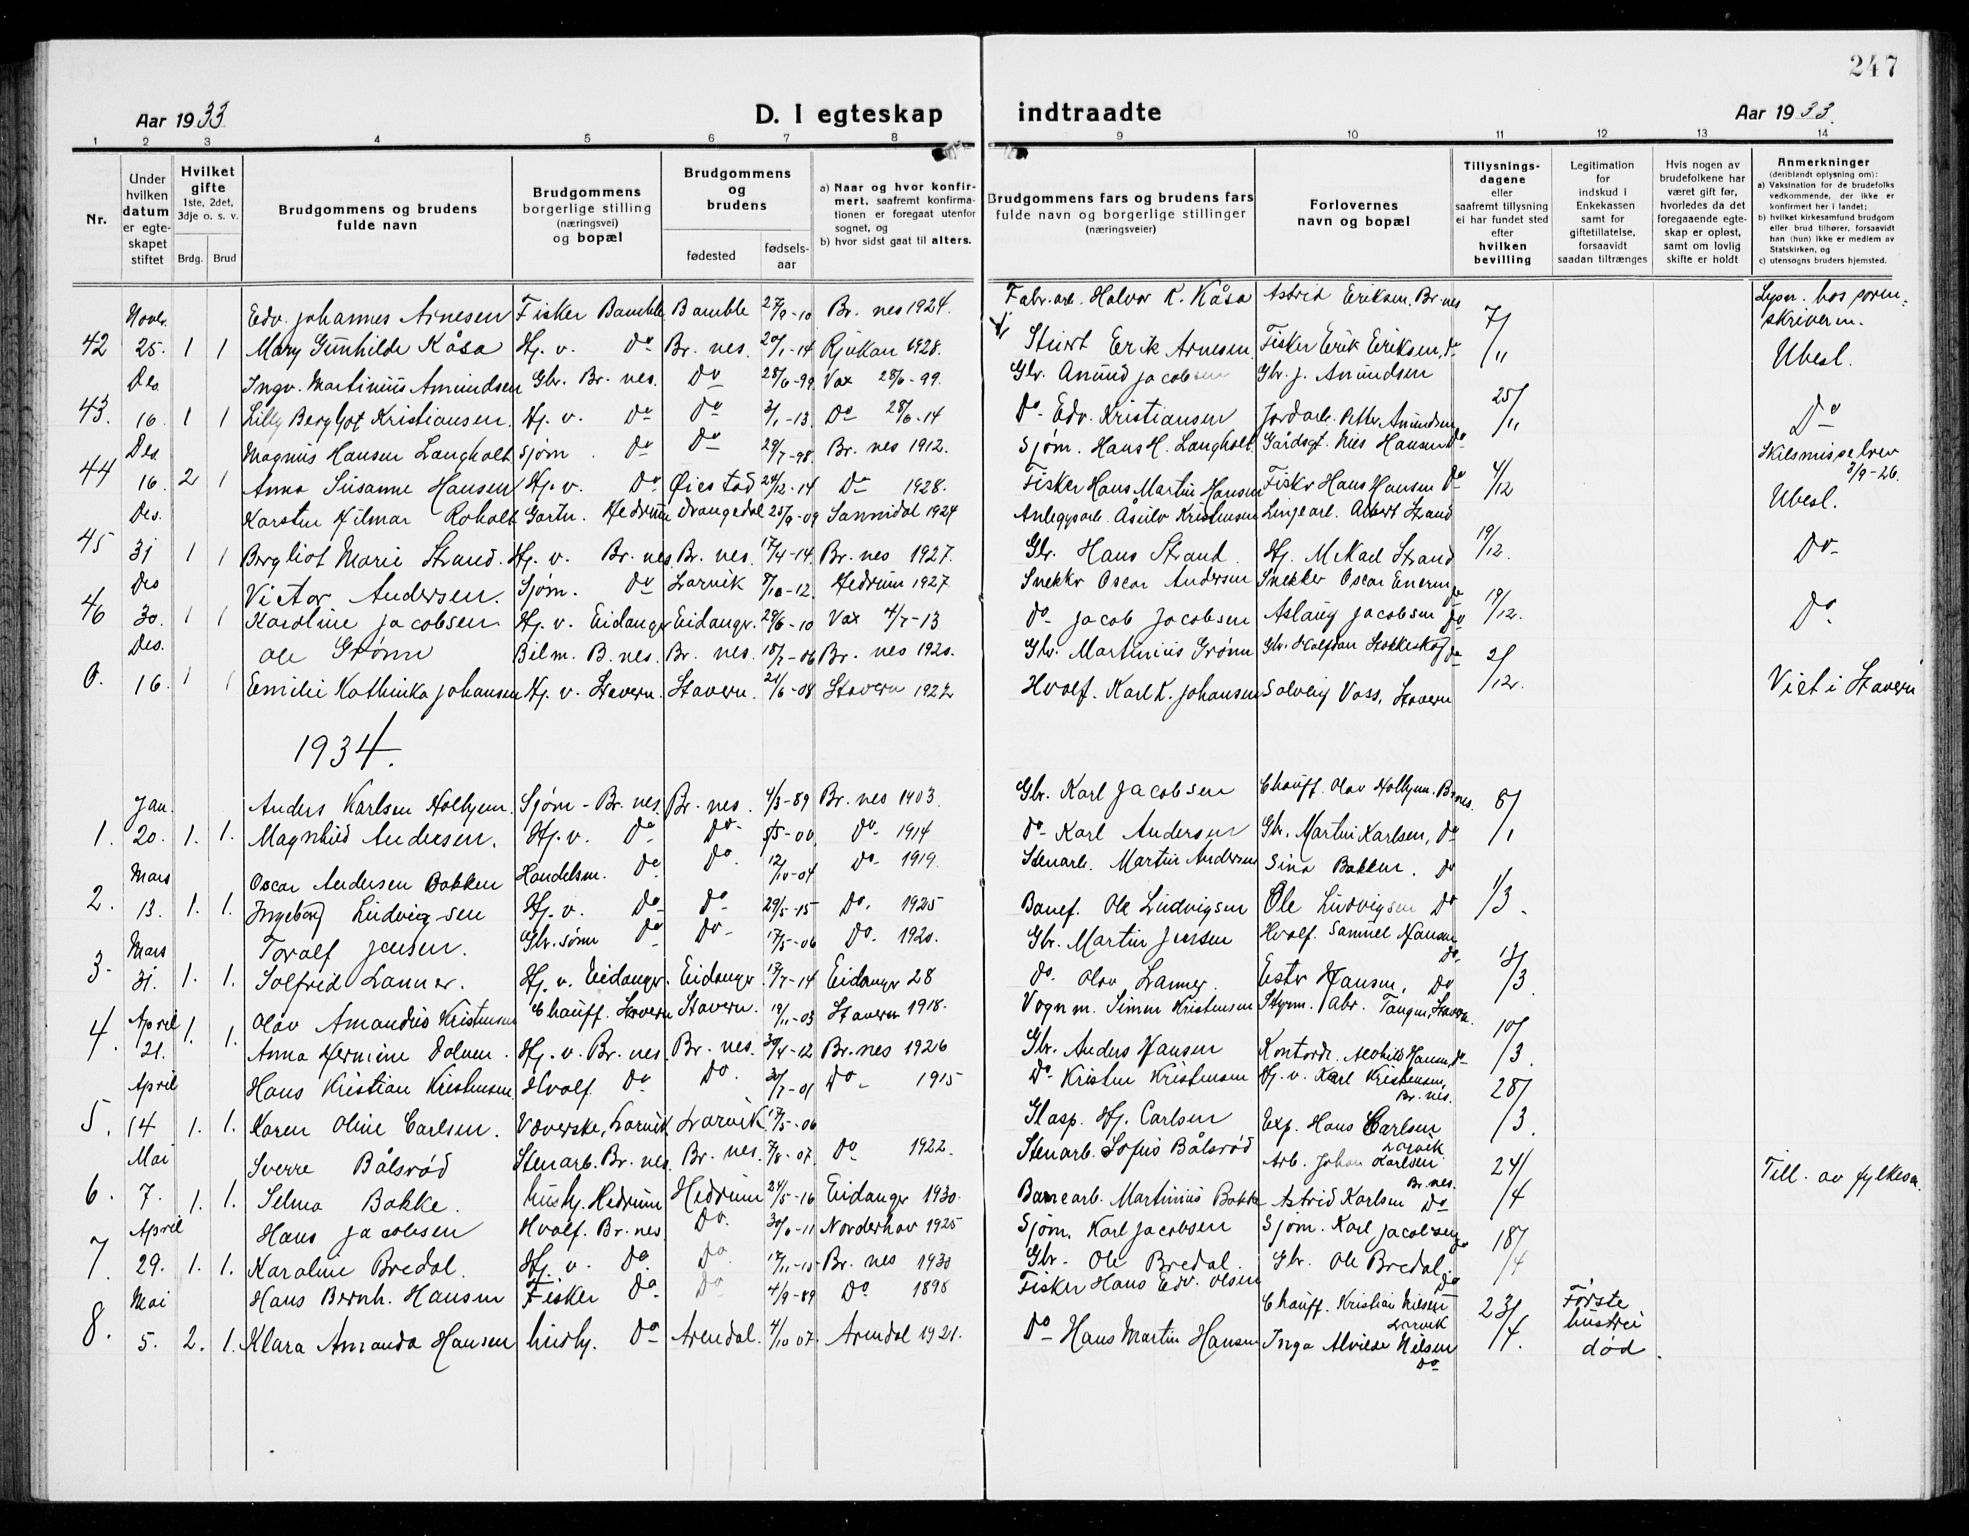 247
Aar 1933
D. I egteskap indtraadte
Aar 1933.
1 2 3 4 5 6 7 8 9 10 11 12 13 14
Nr.
Under hvilken datum er egteskapet stiftet
Hvilket gifte 1ste, 2det, 3dje o. s. v.
Brdg. Brud
Brudgommens og brudens fulde navn
Brudgommens borgerlige stilling (næringsvei) og bopæl
Brudgommens og brudens
fødested
fødselsaar
a) Naar og hvor konfirmert, saafremt konfirmationen er foregaat utenfor sognet, og
b) hvor sidst gaat til alters.
Brudgommens fars og brudens fars fulde navn og borgerlige stillinger (næringsveier)
Forlovernes navn og bopæl
Tillysningsdagene eller saafremt tillysning ei har fundet sted efter hvilken bevilling
Legitimation for indskud i Enkekassen samt for giftetillatelse, forsaavidt saadan tiltrænges
Hvis nogen av brudefolkene har været gift før, hvorledes da det foregaaende egteskap er opløst, samt om lovlig skifte er holdt
Anmerkninger (deriblandt oplysning om):
a) Vaksination for de brudefolks vedkommende, der ikke er konfirmert her i landet;
b) hvilket kirkesamfund brudgom eller brud tilhører, forsaavidt han (hun) ikke er medlem av Statskirken, og
c) utensogns bruders hjemsted.
Novr. Edv. Johannes Arnesen Fisker Bamble Bamble 27/9-10 Br. nes 1924. Fabr. arb. Halvor K. Kåsa Astrid Eriksen, Br. nes 7/11 Lysn. hos sorenskriveren.
42 25. 1 1 Mary Gunhilde Kåsa Hj. v. Do Br. nes. 20/1-14 Rjukan 1928. Erik Arnesen Fisker Erik Eriksen, do Ubesl.
Des. Ingv. Martinius Amundsen Gbr. Br. nes. Do 28/6-99 Vax 28/6-99. Gbr. Amund Jacobsen Gbr. J. Amundsen 25/11
43. 16 1 1 Lilly Bergljot Kristiansen Hj. v. Do Do 3/1-13 Do 28/6-14 Do Edv. Kristiansen Jordarb. Petter Amundsen Do
Des. Magnus Hansen Langholt Sjøm. Do Do 29/7-98. Br. nes 1912. Sjøm. Hans H. Langholt Gårdsgt. Nils Hansen Do 4/12 Skilsmissebrev 3/9-26.
44 16. 2 1 Anna Susanne Hansen Hj. v. Do Øiestad 24/12-14 Do 1928. Fisker Hans Martin Hansen Fisker Hans Hansen Do Ubesl.
Des. Karsten Hilmar Roholt Gartn. Hedrum Drangedal 25/9-09 Sannidal 1924 Anleggsarb. Åsulv Kristensen Linjearb. Albert Strand 19/12.
45 31 1 1 Bergliot Marie Strand. Hj. v. Br. nes Br. nes. 17/4-14. Br. nes 1927. Gbr. Hans Strand. Hj. Strand Do
Des Victor Andersen. Sjøm. Do Larvik 8/10-12. Hedrum 1927. Snekker Oscar Andersen Snekker Oscar 19/12.
46 30. 1 1 Karoline Jacobsen Hj. v. Eidanger Eidangr. 29/6-10 Vax 4/7-13 Do Jacob Jacobsen Aslaug Jacobsen Do Do
Des. Ole Grønn Bilm. B. nes. Br. nes. 18/7-06 Br. nes 1920. Gbr. Martinius Grønn Gbr. Halfdan Stokkeskog Do 2/12.
0. 16. 1 1 Emilie Kathinka Johansen Hj. v. Stavern. Stavern. 21/6-08 Stavern 1922 Hvalf. Karl K. Johansen Solveig Voss, Stavern Viet i Stavern
1934.
Jan. Anders Karlsen Holhjem. Sjøm - Br. nes. Br. nes. 4/3-89 Br. nes 1903. Gbr. Karl Jacobsen Chauff. Olav Holhjem. Br. nes. 6/1
1. 20. 1. 1. Magnhild Andersen. Hj. v. Do Do 8/5-00. Do 1914 Do Karl Andersen Gbr. Martin Karlsen, Do
Mars Oscar Andersen Bakken Handelsm. Do Do 12/10-04 Do 1919. Stenarb. Martin Andersen Sina Bakken. Do 1/3.
2. 13. 1. 1. Ingeborg Ludvigsen Hj. v. Do Do 29/5-15 Do. 1925 Banef. Ole Ludvigsen Ole Ludvigsen Do
Mars Toralf Jensen. Gbr. sønn Do Do 17/5-06 Do. 1920. Gbr. Martin Jensen Hvalf. Samuel Hansen Do.
3. 31. 1. 1. Solfrid Lanner. Hj. v. Eidanger. Eidangr. 17/7-14 Eidangr 28 Do. Olav Lanner. Ester Hansen, Do
April Olav Amandus Kristensen Chauff. Stavern Stavern. 19/11-03 Stavern 1918. Vognm. Simon Kristensen Styrm. Abr. Tangen, Stavern. 10/3.
4. 21. 1. 1. Anna Hermine Dolven. Hj. v. Br. nes. Br. nes. 30/4-12 Br. nes 1926 Gbr. Anders Hansen Kontord. Hansen, do
April Hans Kristian Kristensen Hvalf. Do Do. 30/7-01 Do 1915 Do Kristen Kristensen Hj. v. Karl Kristensen, Br. nes. 28/3.
5. 14 1. 1. Karen Oline Carlsen. Væverske, Larvik Larvik. 17/5-06 Glasp. Hj. Carlsen Exp. Hans Carlsen Larvik
Mai Sverre Bålsrød Stenarb. Br. nes. Br. nes. 7/8-07. Do 1922. Stenarb. Sofus Bålsrød Arb. Johan Karlsen Br. nes. 24/4 Till. av fylkesm.
6. 7. 1. 1. Selma Bakke. hush. Hedrum Hedrum 24/5-16 Eidangr 1930. Banearb. Martinius Bakke Astrid Karlsen Do
April Hans Jacobsen Hvalf. Br. nes Do. 30/6-11 Norderhov 1925 Sjøm. Karl Jacobsen Sjøm. Karl Jacobsen Do 18/4
7. 29. 1. 1. Karoline Bredal. Hj. v. Do. Do 17/11-15 Br. nes 1930 Gbr. Ole Bredal. Gbr. Ole Bredal. Do
Mai Hans Bernh. Hansen Fisker Do. Do 4/9-89 Do. 1898 Fisker Hans Edv. Olsen Chauff. Kristian Nilsen Larvik 23/4. Første hustru død.
8. 5. 2. 1. Klara Amanda Hansen hush. Do Arendal. 4/10 07. Arendal 1921. Do Hans Martin Hansen Inga Alvilde Nilsen Do